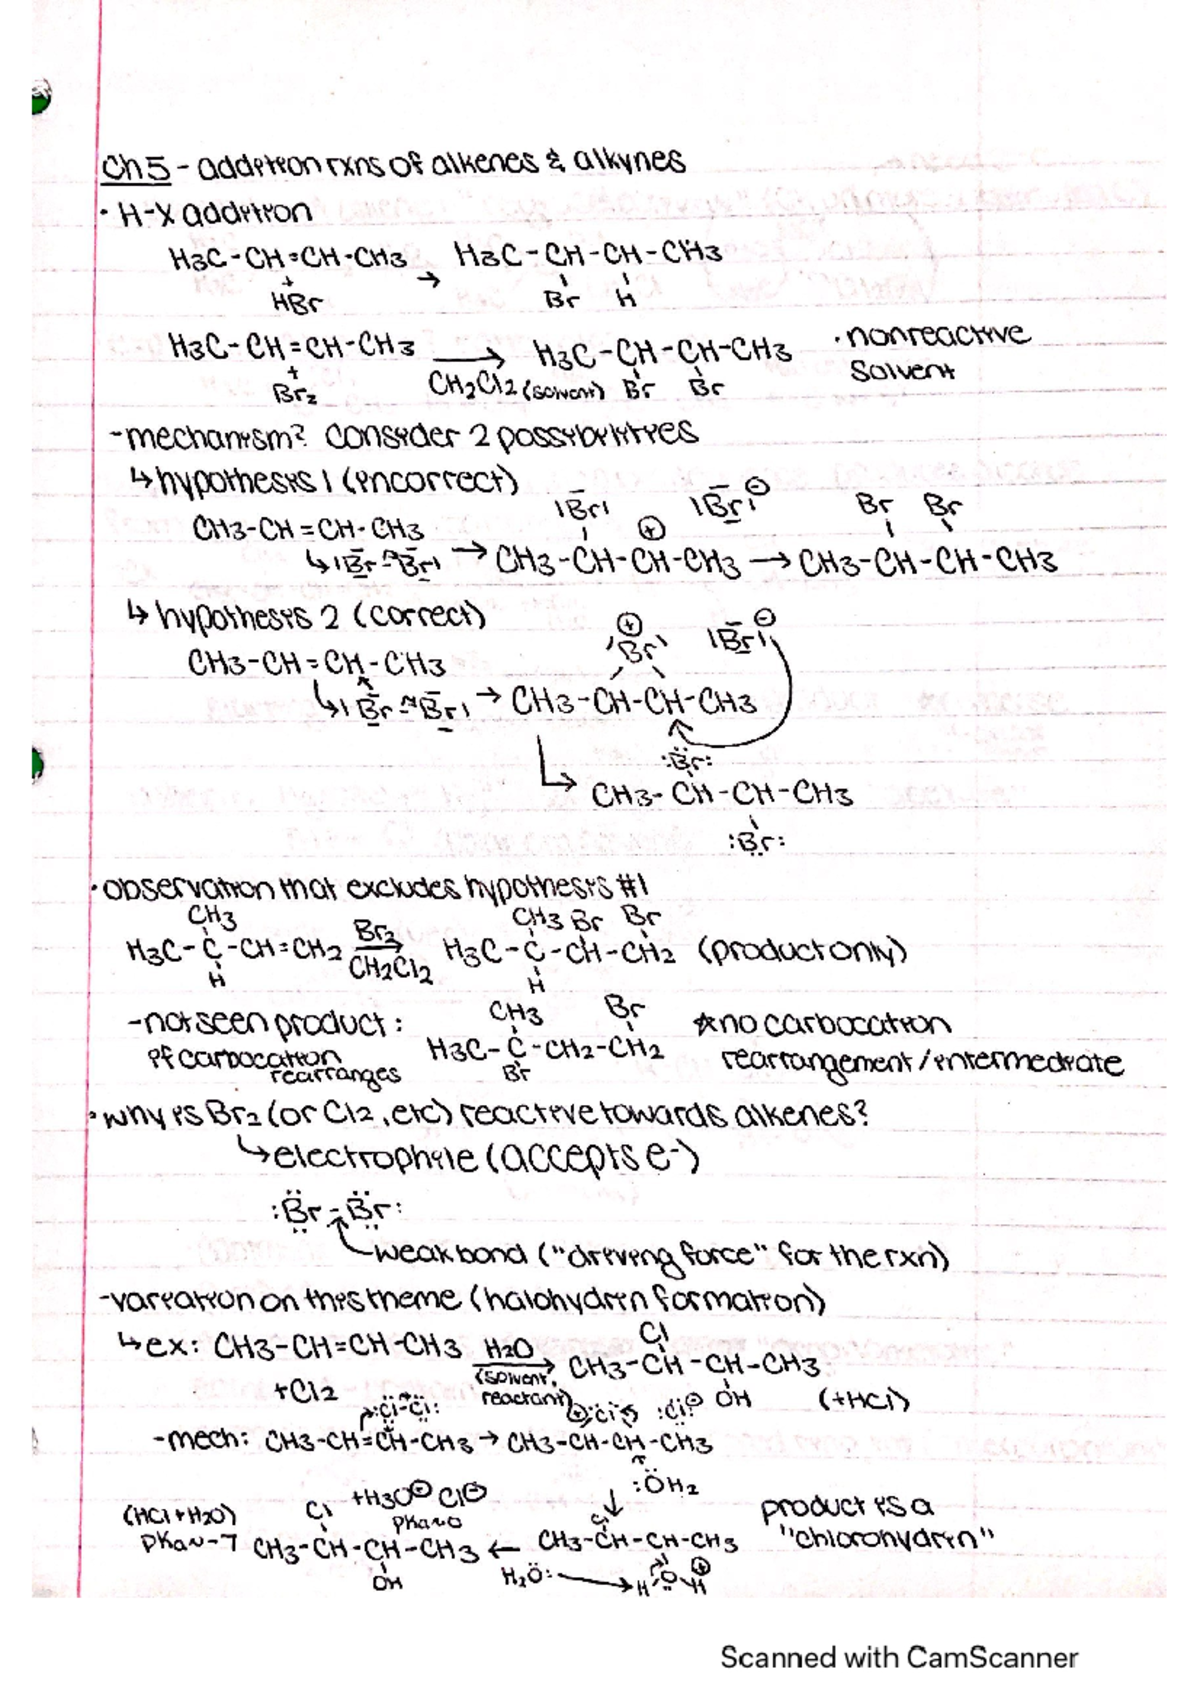 Ch 5 - addition rxns of alkenes & alkynes
· H-X addition
H3C-CH=CH-CH3 → H3C-CH-CH-CH3
+
HBr Br H
H3C-CH=CH-CH3 → H3C-CH-CH-CH3 · nonreactive
+ CH2Cl2 (solvent) Br Br solvent
Br2
-mechanism? consider 2 possibilities
↳ hypothesis 1 (incorrect)
|Br| ⊕ |Br| ⊖ Br Br
CH3-CH=CH-CH3
↳ |Br-Br| → CH3-CH-CH-CH3 → CH3-CH-CH-CH3
↳ hypothesis 2 (correct)
⊕ Br |Br| ⊖
CH3-CH=CH-CH3
↳ |Br-Br| → CH3-CH-CH-CH3
:Br:
↳ CH3-CH-CH-CH3
:Br:
· observation that excludes hypothesis #1
CH3 Br2 CH3 Br Br
H3C-C-CH=CH2 → H3C-C-CH-CH2 (product only)
H CH2Cl2 H
-not seen product: CH3 Br ☆no carbocation
if carbocation rearranges H3C-C-CH2-CH2 rearrangement/intermediate
Br
· why is Br2 (or Cl2, etc) reactive towards alkenes?
↳ electrophile (accepts e-)
:Br-Br:
weak bond ("driving force" for the rxn)
-variation on this theme (halohydrin formation)
Cl
↳ ex: CH3-CH=CH-CH3 H2O → CH3-CH-CH-CH3
+Cl2 (solvent, reactant) OH (+HCl)
:Cl-Cl: ⊕ Cl :Cl: ⊖
-mech: CH3-CH=CH-CH3 → CH3-CH-CH-CH3
:ÖH2
(HCl+H2O) Cl +H3O⊕ Cl⊖ ↓ product is a
pKa~-7 pKa~0 Cl "chlorohydrin"
CH3-CH-CH-CH3 ← CH3-CH-CH-CH3
OH H2Ö: → H O H ⊕
Scanned with CamScanner